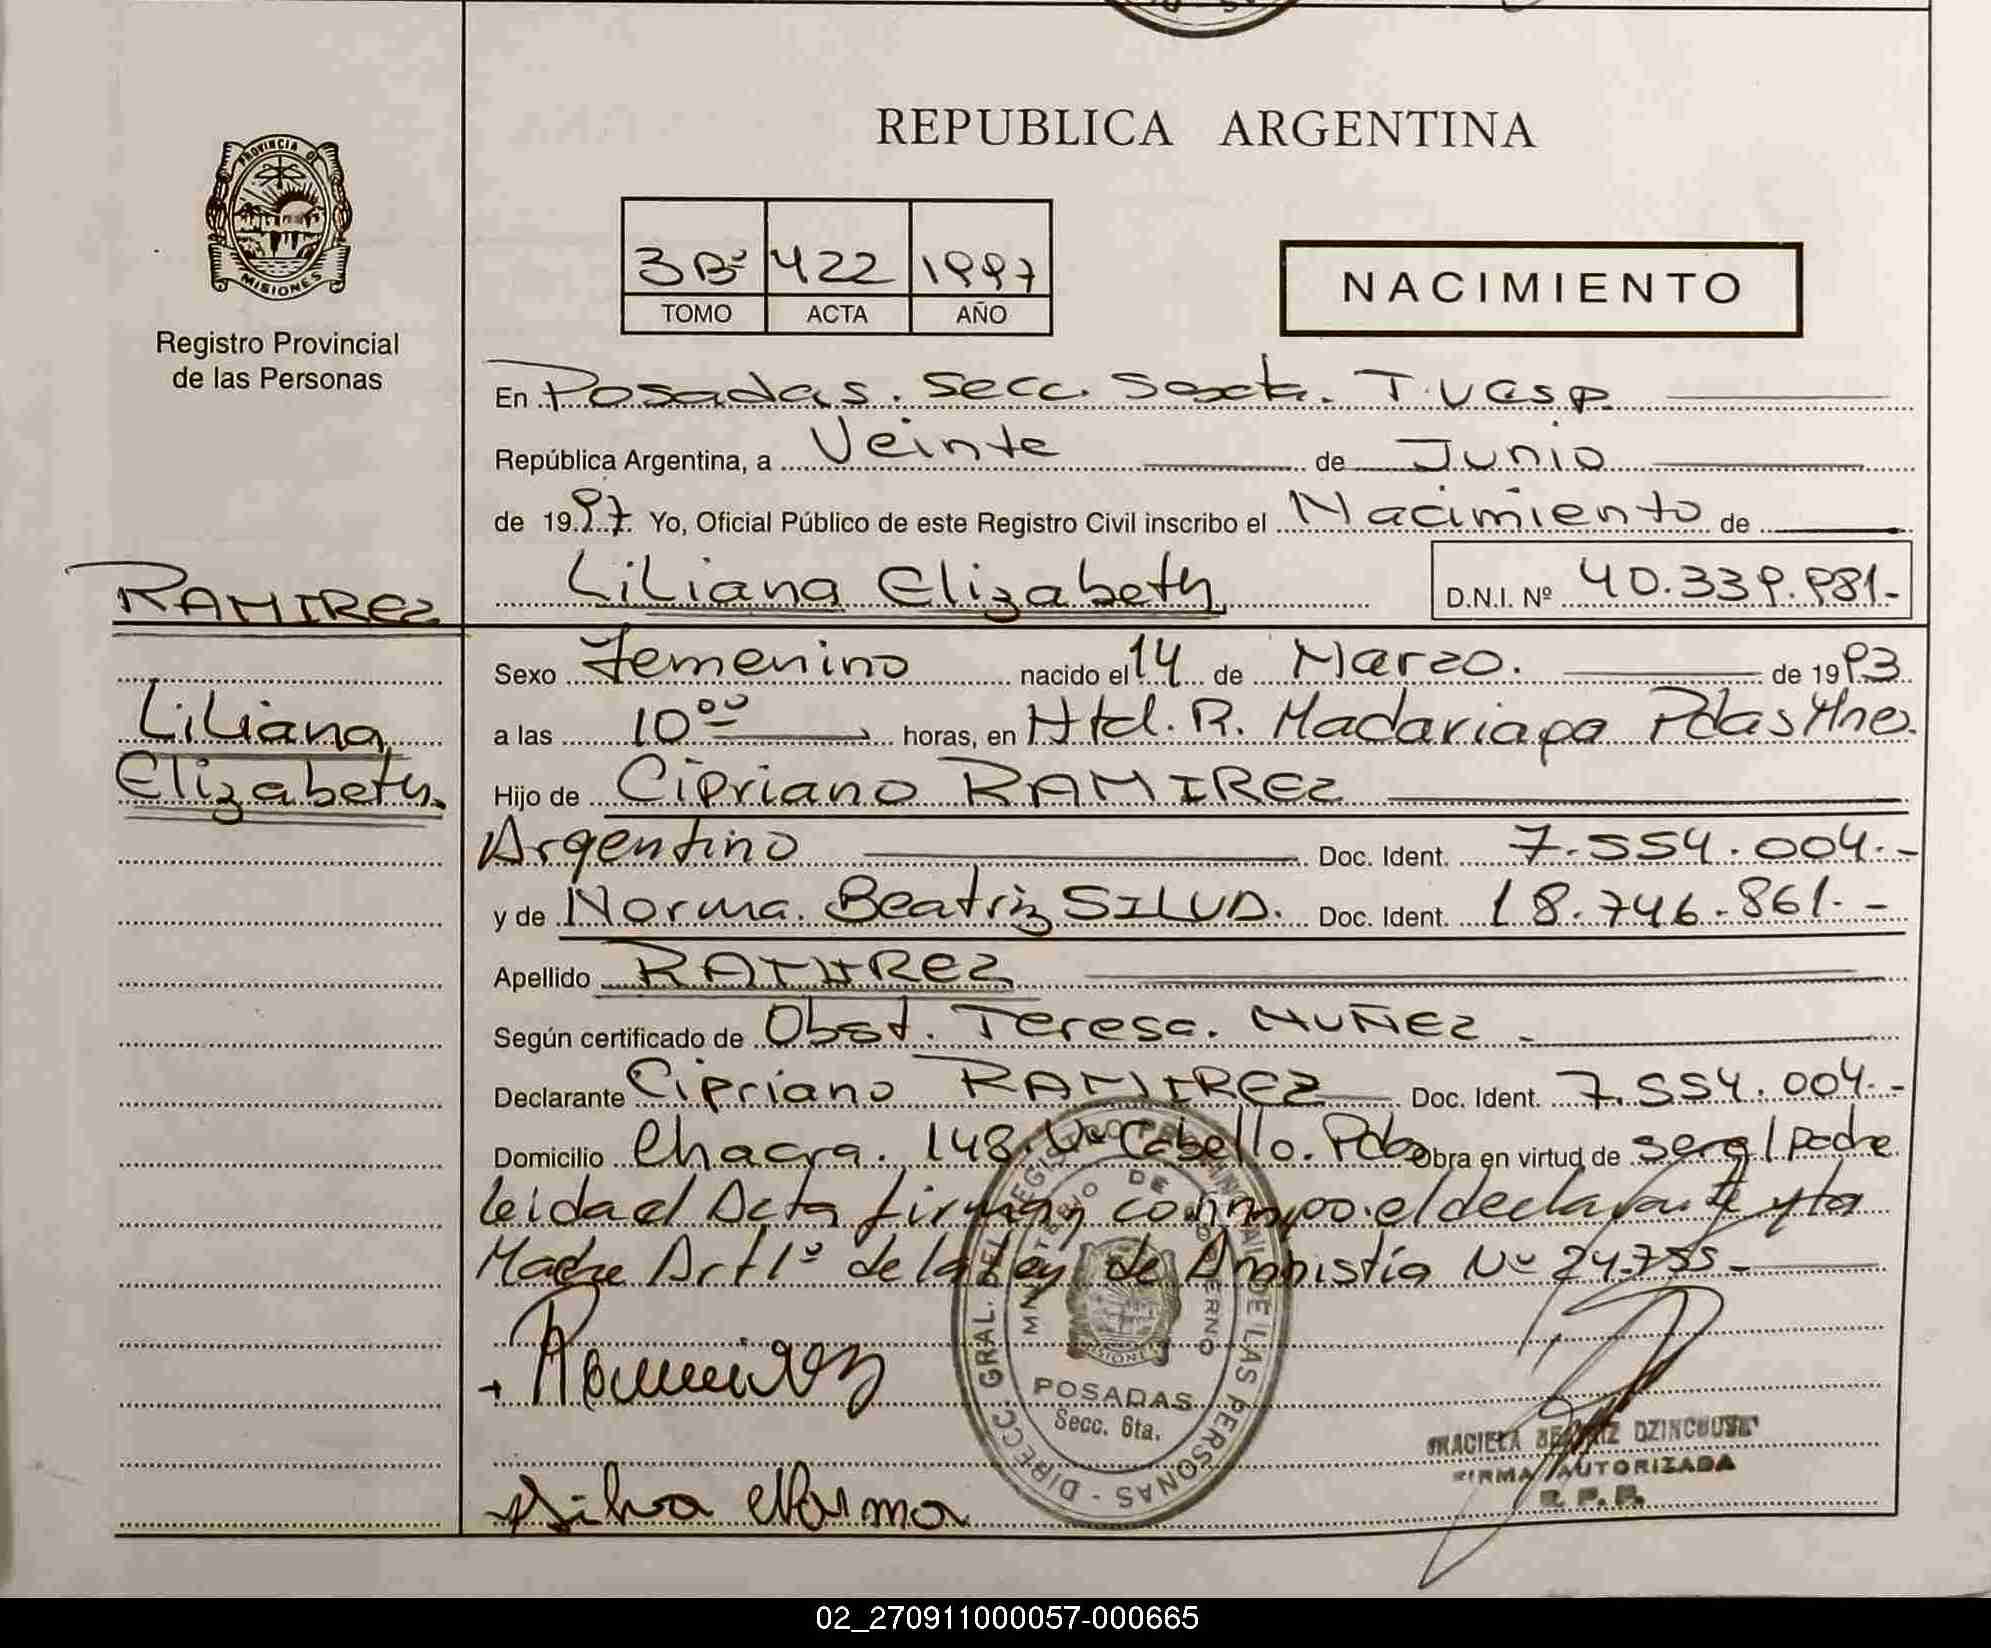 REPUBLICA ARGENTINA
PROVINCIA DE
MISIONES
Registro Provincial
de las Personas
3Bº 422 1997
TOMO ACTA AÑO
NACIMIENTO
En Posadas. Secc. Sexta.
República Argentina, a Veinte de Junio
de 1997. Yo, Oficial Público de este Registro Civil inscribo el Nacimiento de
RAMIREZ
Liliana
Elizabeth.
Liliana Elizabeth D.N.I. Nº 40.339.981.-
Sexo Femenino nacido el 14 de Marzo. de 1993
a las 10⁰⁰ horas, en Htal. R. Madariaga Pdas Mnes.
Hijo de Cipriano RAMIREZ
Argentino Doc. Ident. 7.554.004.-
y de Norma. Beatriz SILVA. Doc. Ident. 18.746.861.-
Apellido RAMIREZ
Según certificado de Obst. Teresa. NUÑEZ
Declarante Cipriano RAMIREZ Doc. Ident. 7.554.004.-
Domicilio Chacra. 148. Vª Cabello. Pdas Obra en virtud de ser el padre
Leida el Acta firman conmigo el declarante y la
Madre Art 1º de la Ley de Amnistía Nº 24.755-
Ramirez
MINISTERIO DE GOBIERNO
POSADAS
Secc. 6ta.
GRACIELA BEATRIZ
FIRMA AUTORIZADA
R. P. P.
Silva Norma
02_270911000057-000665